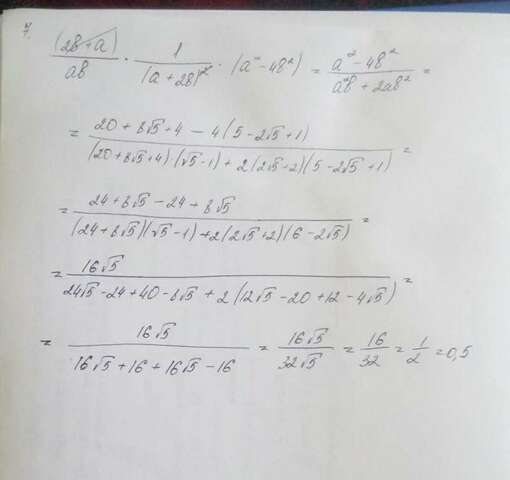 7.
(2в+a)/aв · 1/(a+2в)² · (a²-4в²) = (a²-4в²)/(a²в+2aв²) =
= (20+8√5+4-4(5-2√5+1))/((20+8√5+4)(√5-1)+2(2√5+2)(5-2√5+1)) =
= (24+8√5-24+8√5)/((24+8√5)(√5-1)+2(2√5+2)(6-2√5)) =
= 16√5/(24√5-24+40-8√5+2(12√5-20+12-4√5)) =
= 16√5/(16√5+16+16√5-16) = 16√5/32√5 = 16/32 = 1/2 = 0,5